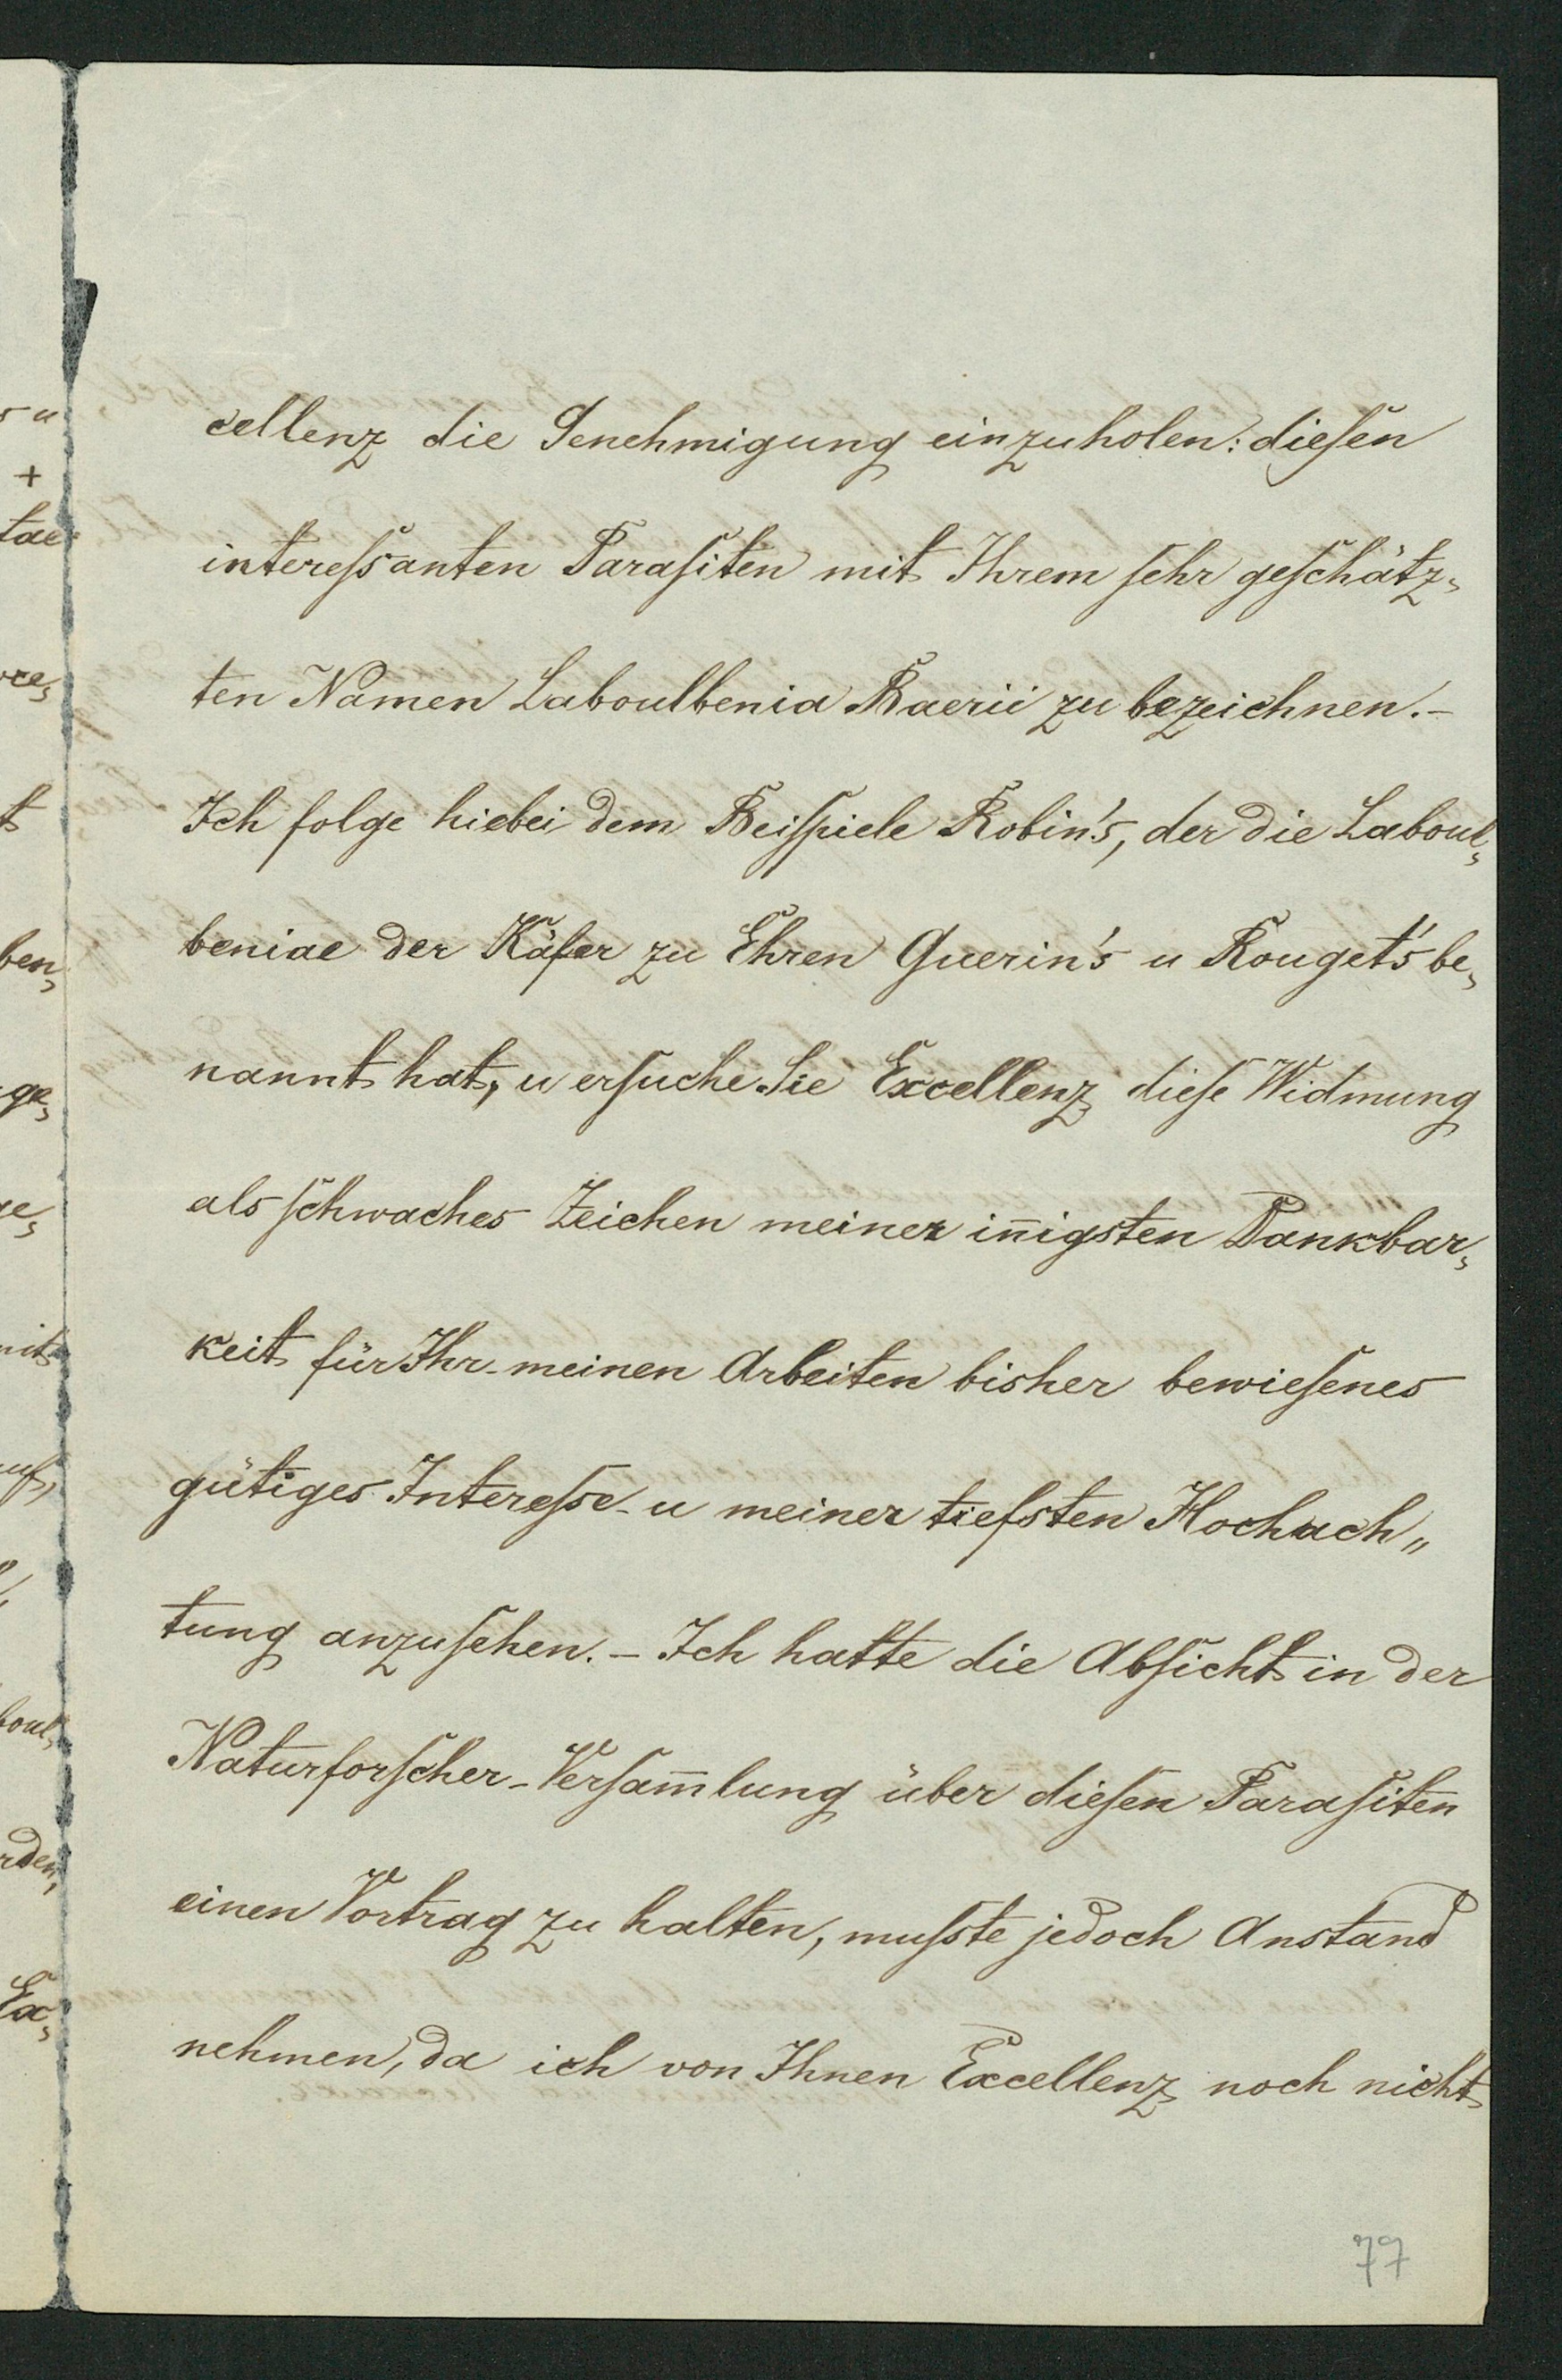 cellenz die Genehmigung einzuholen: diesen
interessanten Parasiten mit Ihrem sehr geschätz-
ten Namen Laboulbenia Baerii zu bezeichnen.-
Ich folge hiebei dem Beispiele Robin's, der die Laboul-
beniae der Käfer zu Ehren Guerin's u Rouget's be-
nannt hat, u ersuche Sie Excellenz diese Widmung
als schwaches Zeichen meiner iñigsten Dankbar-
keit für Ihr meinen Arbeiten bisher bewiesenes
gütiges Interesse u meiner tiefsten Hochach„
tung anzusehen. - Ich hatte die Absicht in der
Naturforscher-Versam̄lung über diesen Parasiten
einen Vortrag zu halten, musste jedoch Anstand
nehmen, da ich von Ihnen Excellenz noch nicht
77